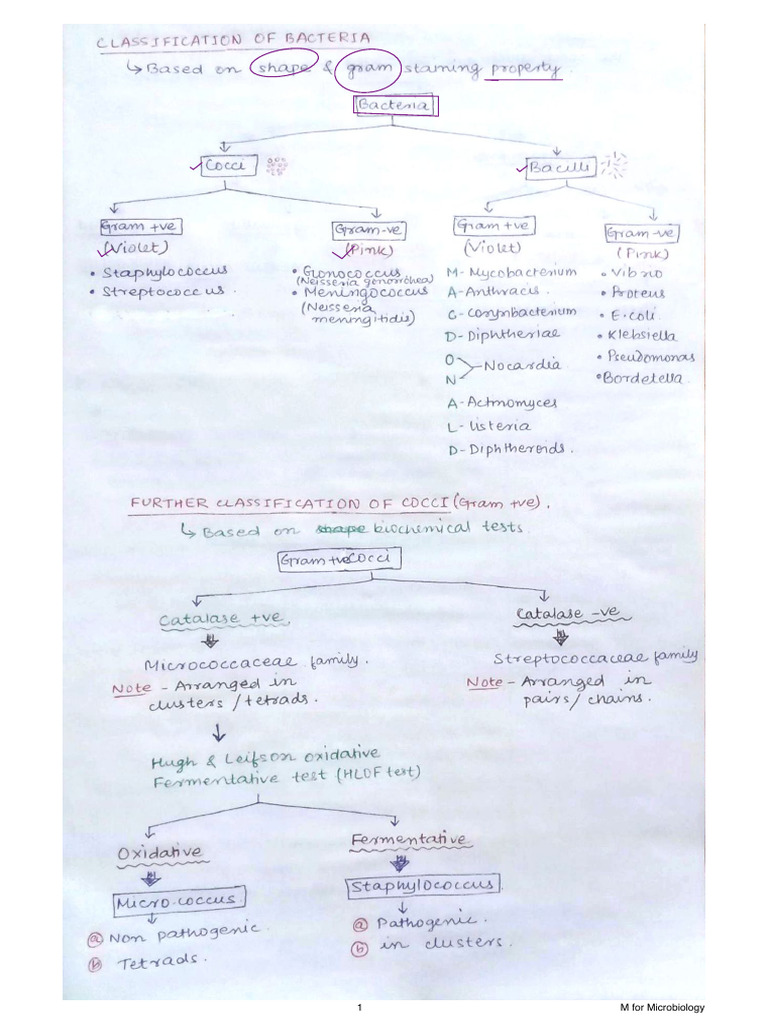 CLASSIFICATION OF BACTERIA
↳ Based on shape & gram staining property.
Bacteria
Cocci
Bacilli
Gram +ve
(Violet)
• Staphylococcus
• Streptococcus.
Gram -ve
(Pink)
• Gonococcus
(Neisseria gonorrhoea)
• Meningococcus
(Neisseria
meningitidis)
Gram +ve
(Violet)
M- Mycobacterium
A- Anthracis.
C- Corynbacterium
D- Diphtheriae
O
N
Nocardia
A- Actinomyces
L- Listeria
D- Diphtheroids.
Gram -ve
(Pink)
• Vibrio
• Proteus
• E.coli
• Klebsiella
• Pseudomonas
• Bordetella.
FURTHER CLASSIFICATION OF COCCI (Gram +ve).
↳ Based on shape biochemical tests.
Gram +ve Cocci
Catalase +ve.
Micrococcaceae family.
Note - Arranged in
clusters / tetrads.
Catalase -ve
Streptococcaceae family
Note - Arranged in
pairs / chains.
Hugh & Leifson Oxidative
Fermentative test (HLOF test)
Oxidative
Micrococcus
(a) Non pathogenic.
(b) Tetrads.
Fermentative
Staphylococcus
(a) Pathogenic.
(b) in clusters.
1
M for Microbiology